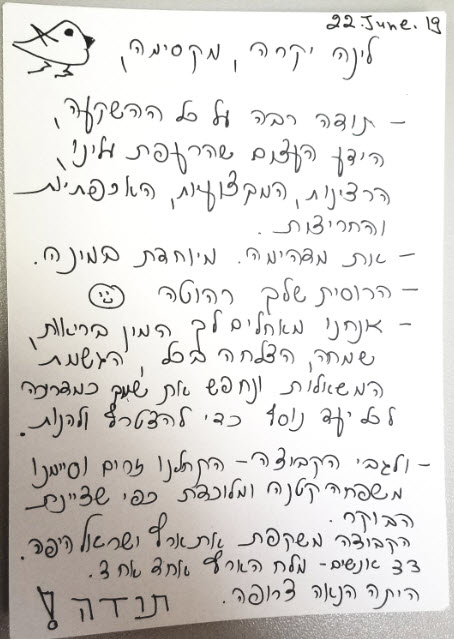 22.June.19
לינה יקרה, מקסימה,
- תודה רבה על כל ההשקעה,
הידע העצום שהרעפת עלינו,
הרצינות, המקצועיות, האכפתיות
והחריצות.
- את מדהימה. מיוחדת במינה.
- הרוסית שלך רהוטה
- אנחנו מאחלים לך המון בריאות,
שמחה, הצלחה בכל, הגשמת
המשאלות ונחפש את שמך כמדריכה
לכל יעד נוסף כדי להצטרף ולהנות.
- ולגבי הקבוצה - התחלנו זרים וסיימנו
משפחה קטנה ומלוכדת כפי שציינת
הבוקר.
הקבוצה משקפת את ארץ ישראל היפה.
33 אנשים - מלח הארץ אחד אחד.
היתה הנאה צרופה. תודה!